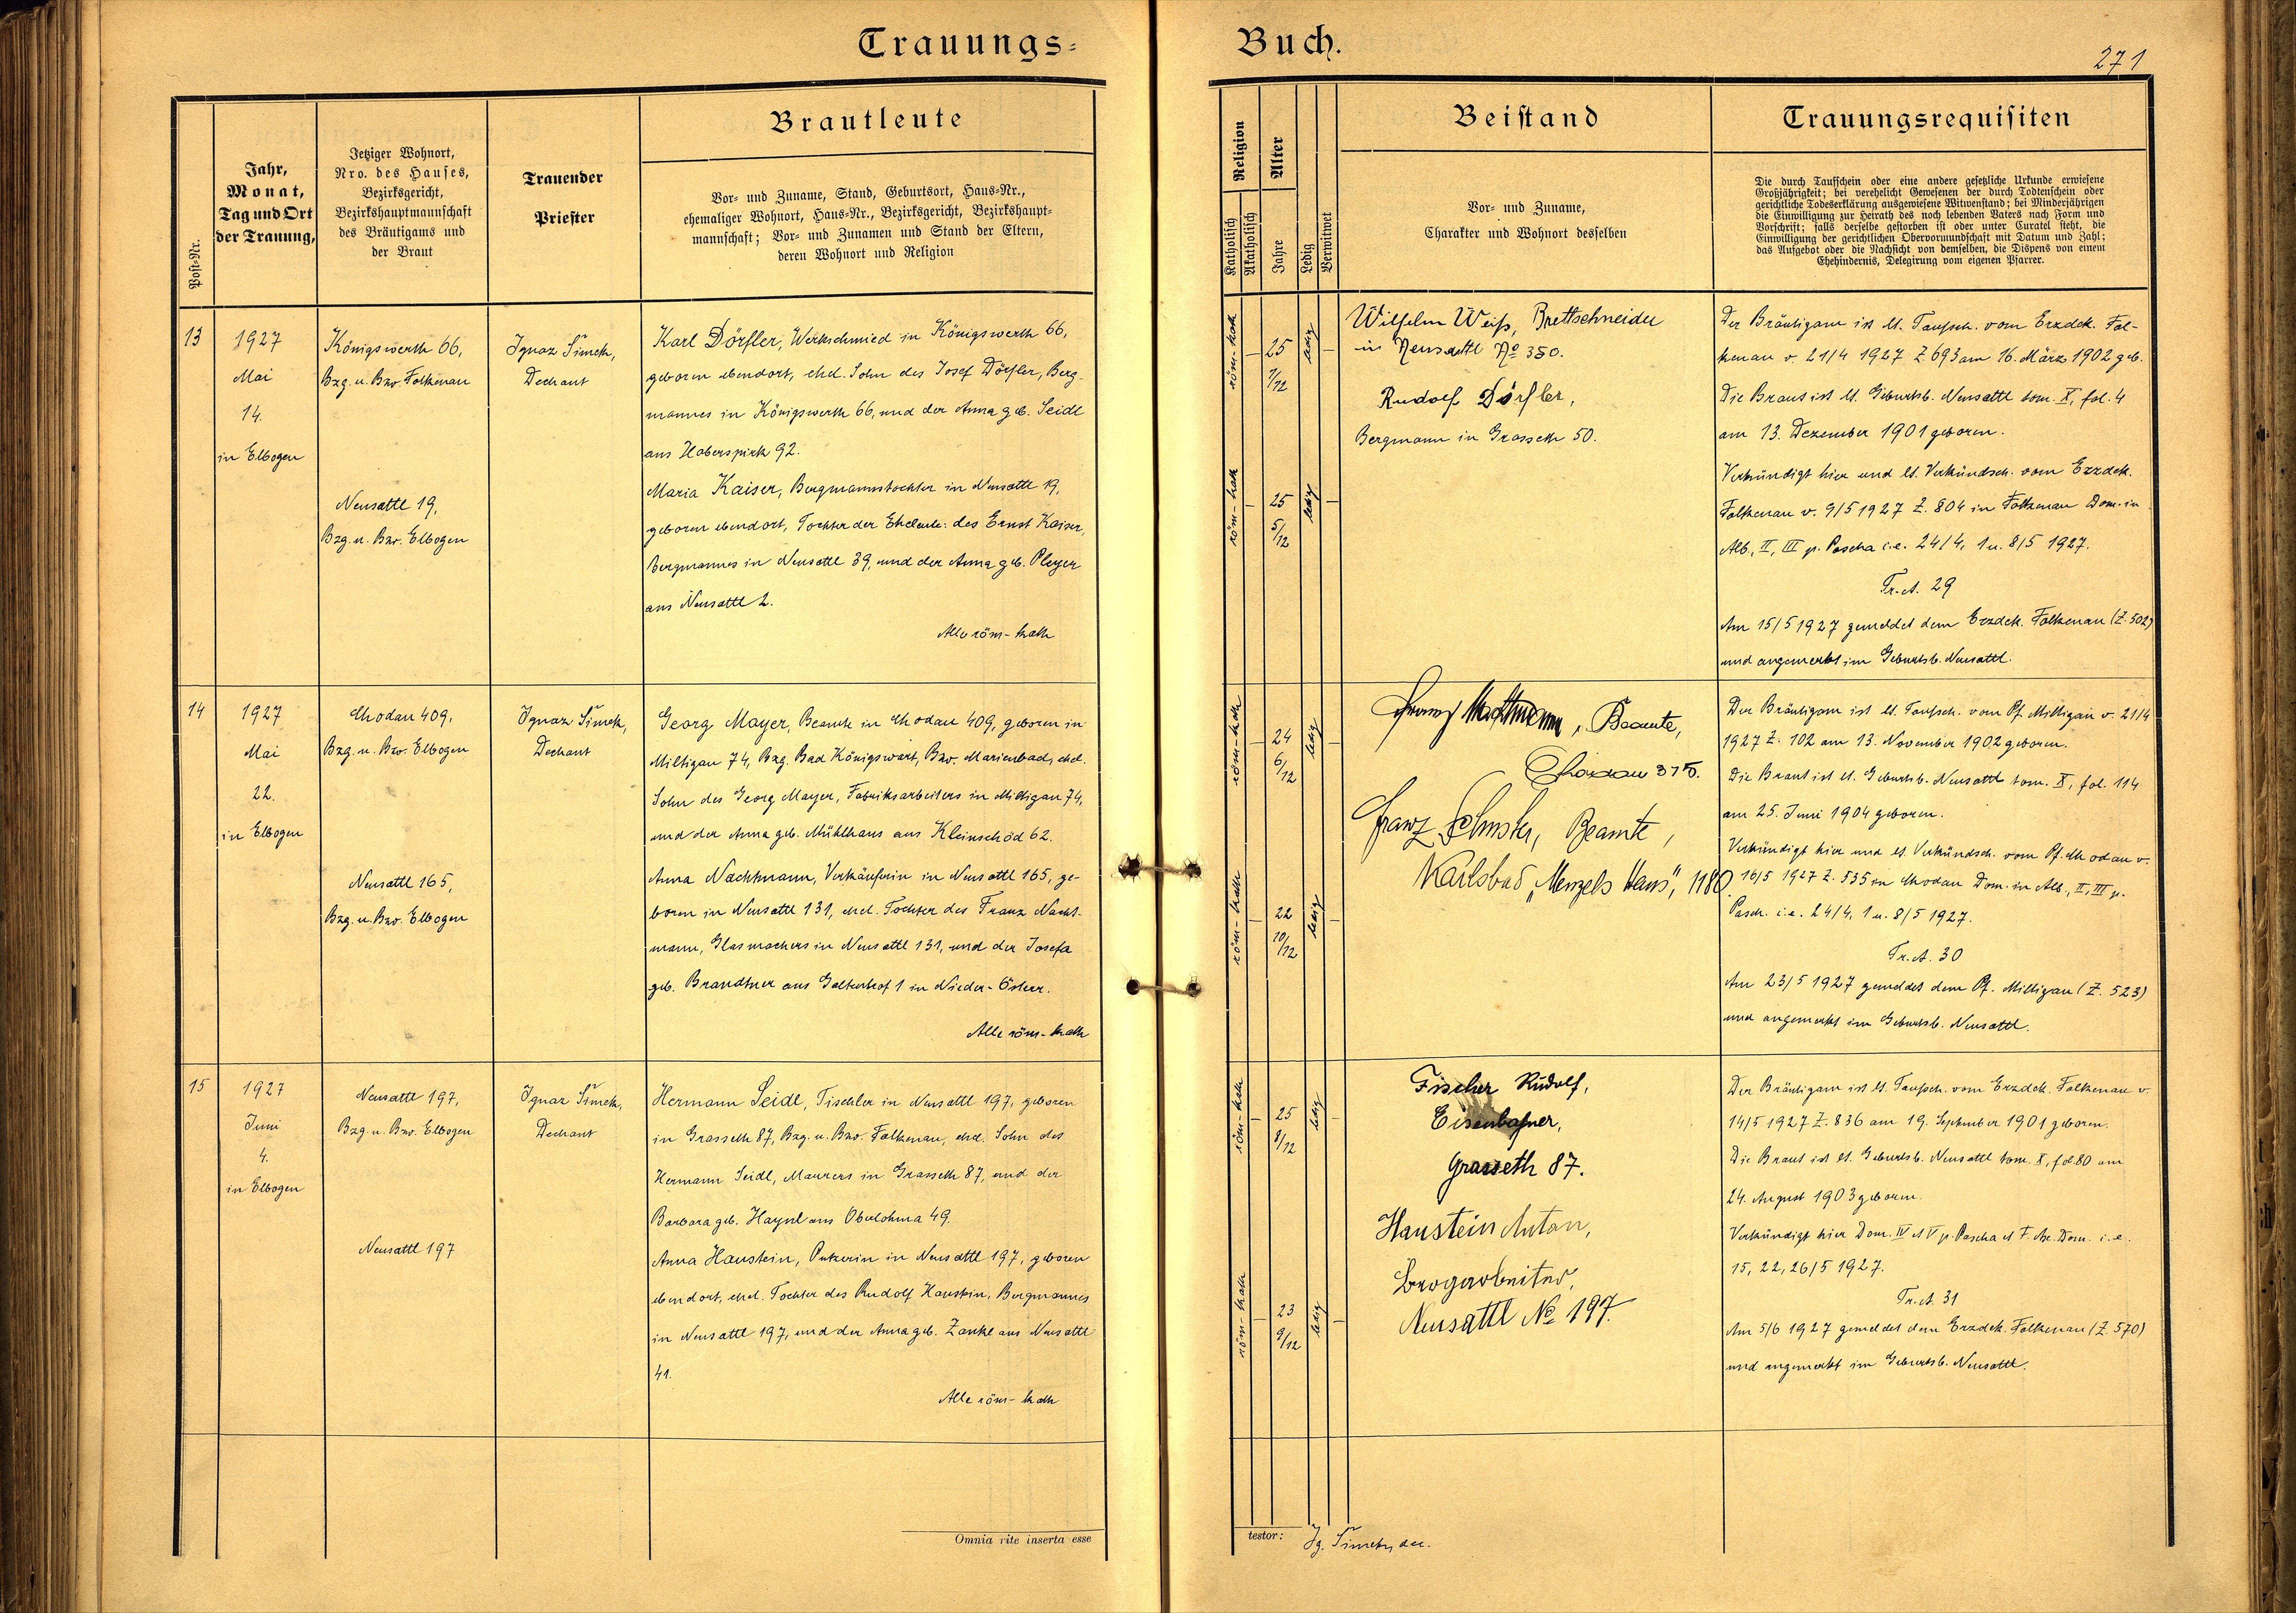 Trauungs-
Buch.
271
Post-Nr.
Jahr,
Monat,
Tag und Ort
der Trauung,
Jetziger Wohnort,
Nro. des Hauses,
Bezirksgericht,
Bezirkshauptmannschaft
des Bräutigams und
der Braut
Trauender
Priester
Brautleute
Vor- und Zuname, Stand, Geburtsort, Haus-Nr.,
ehemaliger Wohnort, Haus-Nr., Bezirksgericht, Bezirkshaupt-
mannschaft; Vor- und Zunamen und Stand der Eltern,
deren Wohnort und Religion
Religion
Katholisch
Akatholisch
Alter
Jahre
Ledig
Verwitwet
Beistand
Vor- und Zuname,
Charakter und Wohnort desselben
Trauungsrequisiten
Die durch Taufschein oder eine andere gesetzliche Urkunde erwiesene
Großjährigkeit; bei verehelicht Gewesenen der durch Todtenschein oder
gerichtliche Todeserklärung ausgewiesene Witwenstand; bei Minderjährigen
die Einwilligung zur Heirath des noch lebenden Vaters nach Form und
Vorschrift; falls derselbe gestorben ist oder unter Curatel steht, die
Einwilligung der gerichtlichen Obervormundschaft mit Datum und Zahl;
das Aufgebot oder die Nachsicht von demselben, die Dispens von einem
Ehehindernis, Delegirung vom eigenen Pfarrer.
13
1927
Mai
14.
in Elbogen
Königswerth 66,
Bzg. u. Bzv. Falkenau
Neusattl 19,
Bzg. u. Bzv. Elbogen
Ignaz Šimek,
Dechant
Karl Dörfler, Werkschmied in Königswerth 66,
geboren ebendort, ehel. Sohn des Josef Dörfler, Berg-
mannes in Königswerth 66, und der Anna geb. Seidl
aus Haberspirk 92.
Maria Kaiser, Bergmannstochter in Neusattl 19,
geboren ebendort, Tochter der Eheleute: des Ernst Kaiser,
Bergmannes in Neusattl 39, und der Anna geb. Pleyer
aus Neusattl 2.
Alle röm-kath
röm-kath
25
7/12
ledig
röm-kath
25
5/12
ledig
Wilhelm Weiß, Brettschneider
in Neusattl No 350.
Rudolf Dörfler,
Bergmann in Grasseth 50.
Der Bräutigam ist lt. Taufsch. vom Erzdek. Fal-
kenau v. 21/4 1927 Z. 693 am 16. März 1902 geb.
Die Braut ist lt. Geburtsb. Neusattl tom. X, fol. 4
am 13. Dezember 1901 geboren.
Verkündigt hier und lt. Verkündsch. vom Erzdek.
Falkenau v. 9/5 1927 Z. 804 in Falkenau Dom. in
Alb., II, III p. Pascha i.e. 24/4, 1 u. 8/5 1927.
Tr. A. 29
Am 15/5 1927 gemeldet dem Erzdek. Falkenau (Z. 502)
und angemerkt im Geburtsb. Neusattl.
14
1927
Mai
22.
in Elbogen
Chodau 409,
Bzg. u. Bzv. Elbogen
Neusattl 165,
Bzg. u. Bzv. Elbogen
Ignaz Šimek,
Dechant
Georg Mayer, Beamte in Chodau 409, geboren in
Miltigau 74, Bzg. Bad Königswart, Bzv. Marienbad, ehel.
Sohn des Georg Mayer, Fabriksarbeiters in Miltigau 74,
und der Anna geb. Mühlhans aus Kleinschöd 62.
Anna Nachtmann, Verkäuferin in Neusattl 165, ge-
boren in Neusattl 131, ehel. Tochter des Franz Nacht-
mann, Glasmachers in Neusattl 131, und der Josefa
geb. Brandtner aus 1 in Nieder-Österr.
Alle röm-kath
röm-kath
24
6/12
ledig
röm-kath
22
10/12
ledig
Franz Nachtmann, Beamte,
Chodau 375.
Franz Schuster, Beamte,
Karlsbad „Menzels Haus", 1180
Der Bräutigam ist lt. Taufsch. vom Pf. Miltigau v. 21/4
1927 Z. 102 am 13. November 1902 geboren.
Die Braut ist lt. Geburtsb. Neusattl tom. X, fol. 114
am 25. Juni 1904 geboren.
Verkündigt hier und lt. Verkündsch. vom Pf. Chodau v.
16/5 1927 Z. 535 in Chodau Dom. in Alb., II, III p.
Pasch. i.e. 24/4, 1 u. 8/5 1927.
Tr. A. 30
Am 23/5 1927 gemeldet dem Pf. Miltigau (Z. 523)
und angemerkt im Geburtsb. Neusattl.
15
1927
Juni
4.
in Elbogen
Neusattl 197,
Bzg. u. Bzv. Elbogen
Neusattl 197
Ignaz Šimek,
Dechant
Hermann Seidl, Tischler in Neusattl 197, geboren
in Grasseth 87, Bzg. u. Bzv. Falkenau, ehel. Sohn des
Hermann Seidl, Maurers in Grasseth 87, und der
Barbara geb. Haynl aus Oberlohma 49.
Anna Haustein, Putzerin in Neusattl 197, geboren
ebendort, ehel. Tochter des Rudolf Haustein, Bergmannes
in Neusattl 197, und der Anna geb. Zankl aus Neusattl
41.
Alle röm-kath
röm-kath
25
8/12
ledig
röm-kath
23
9/12
ledig
Fischer Rudolf,
Eisenbahner,
Grasseth 87.
Haustein Anton,
Bergarbeiter,
Neusattl No 197.
Der Bräutigam ist lt. Taufsch. vom Erzdek. Falkenau v.
14/5 1927 Z. 836 am 19. September 1901 geboren.
Die Braut ist lt. Geburtsb. Neusattl tom. X, fol 80 am
24. August 1903 geboren.
Verkündigt hier Dom. IV et V p. Pascha et F. Asc. Dom. i.e.
15, 22, 26/5 1927.
Tr. A. 31
Am 5/6 1927 gemeldet dem Erzdek. Falkenau (Z. 570)
und angemerkt im Geburtsb. Neusattl.
Omnia rite inserta esse
testor: Ig. Šimek, dec.